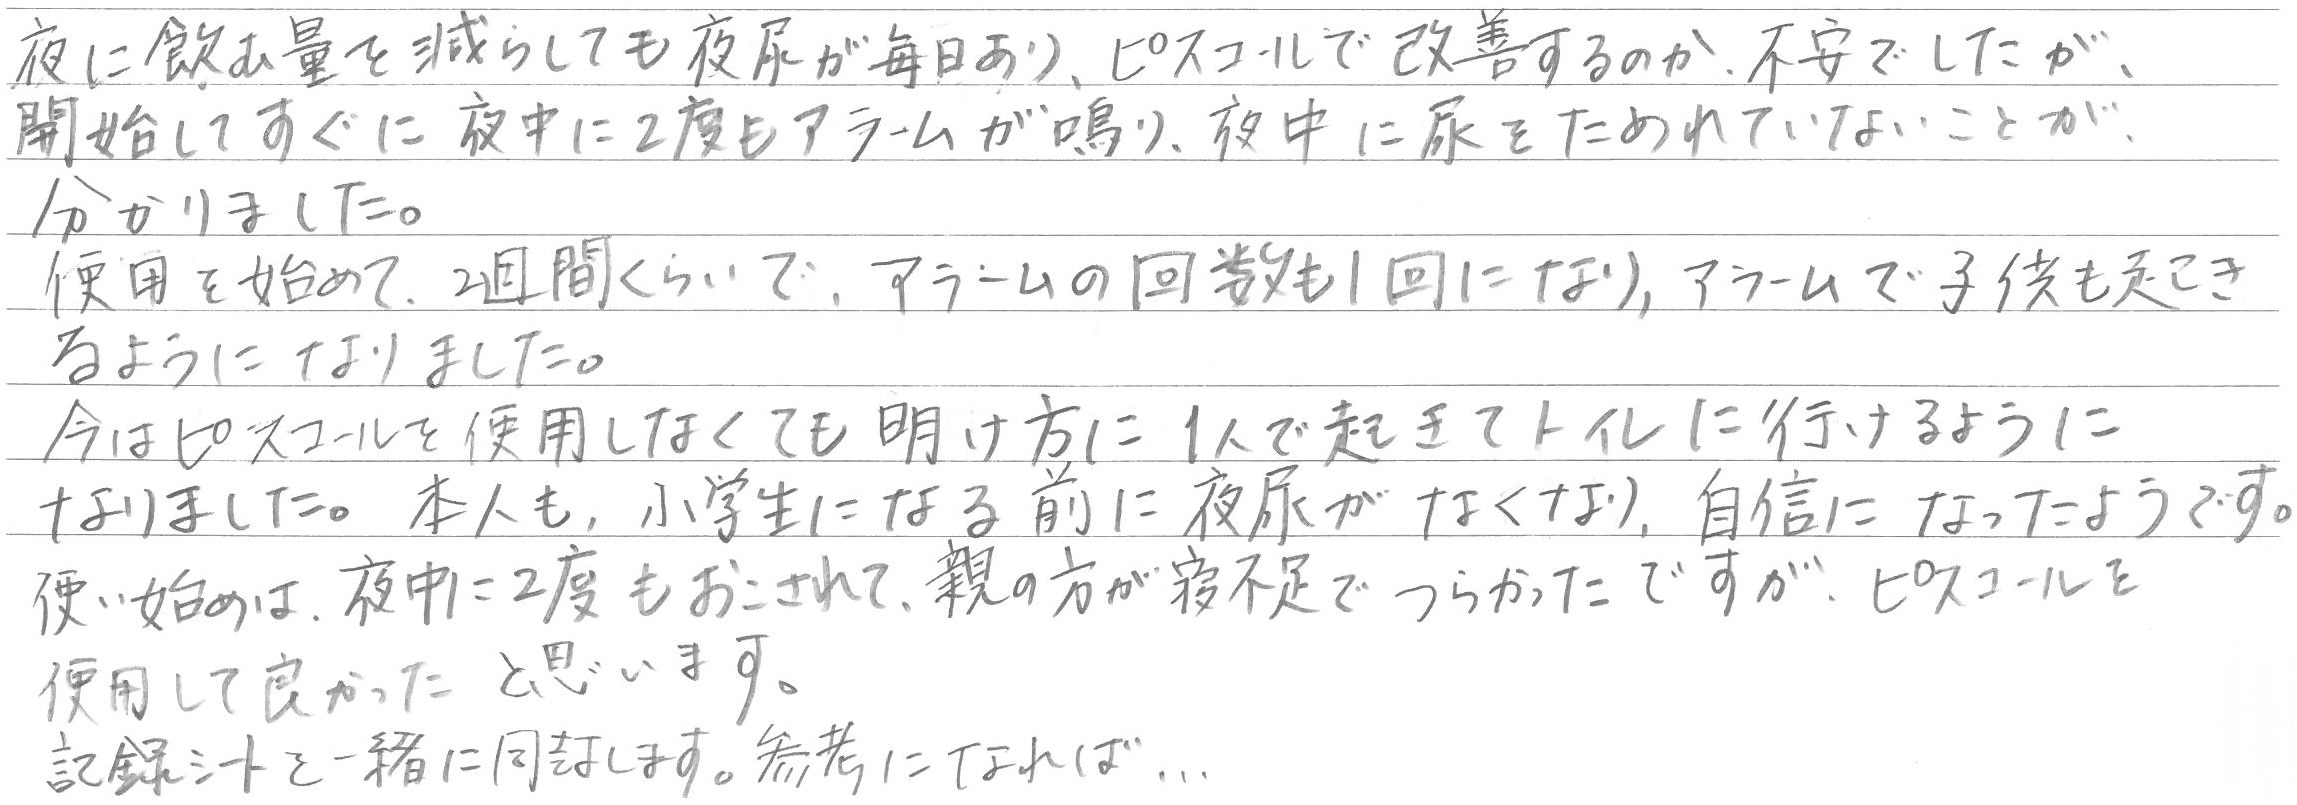 夜に飲む量を減らしても夜尿が毎日あり、ピスコールで改善するのか、不安でしたが、
開始してすぐに夜中に2度もアラームが鳴り、夜中に尿をためれていないことが、
分かりました。
使用を始めて、2週間くらいで、アラームの回数も1回になり、アラームで子供も起き
るようになりました。
今はピスコールを使用しなくても明け方に1人で起きてトイレに行けるように
なりました。本人も、小学生になる前に夜尿がなくなり、自信になったようです。
使い始めは、夜中に2度もおこされて、親の方が寝不足でつらかったですが、ピスコールを
使用して良かったと思います。
記録シートを一緒に同封します。参考になれば…